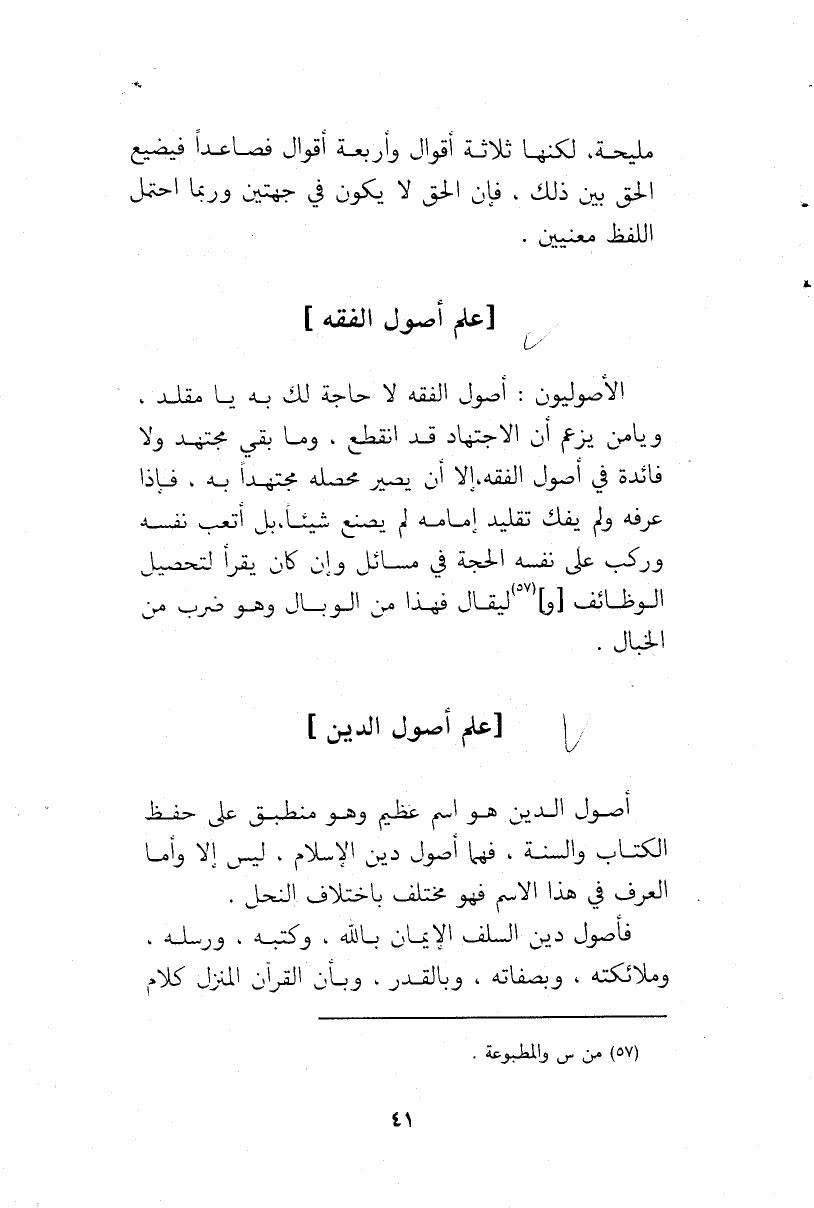 مليحة، لكنها ثلاثة أقوال وأربعة أقوال فصاعداً فيضيع
الحق بين ذلك ، فإن الحق لا يكون في جهتين وربما احتمل
اللفظ معنيين .
[علم أصول الفقه ]
الأصوليون : أصول الفقه لا حاجة لك به يا مقلد ،
ويامن يزعم أن الاجتهاد قد انقطع ، وما بقي مجتهد ولا
فائدة في أصول الفقه،إلا أن يصير محصله مجتهداً به ، فإذا
عرفه ولم يفك تقليد إمامه لم يصنع شيئاً،بل أتعب نفسه
وركب على نفسه الحجة في مسائل وإن كان يقرأ لتحصيل
الوظائف [و](٥٧)ليقال فهذا من الوبال وهو ضرب من
الخبال .
[علم أصول الدين ]
أصول الدين هو اسم عظيم وهو منطبق على حفظ
الكتاب والسنة ، فهما أصول دين الإسلام ، ليس إلا وأما
العرف في هذا الاسم فهو مختلف باختلاف النحل .
فأصول دين السلف الإيمان بالله ، وكتبه ، ورسله ،
وملائكته ، وبصفاته ، وبالقدر ، وبأن القرآن المنزل كلام
(٥٧) من س والمطبوعة .
٤١